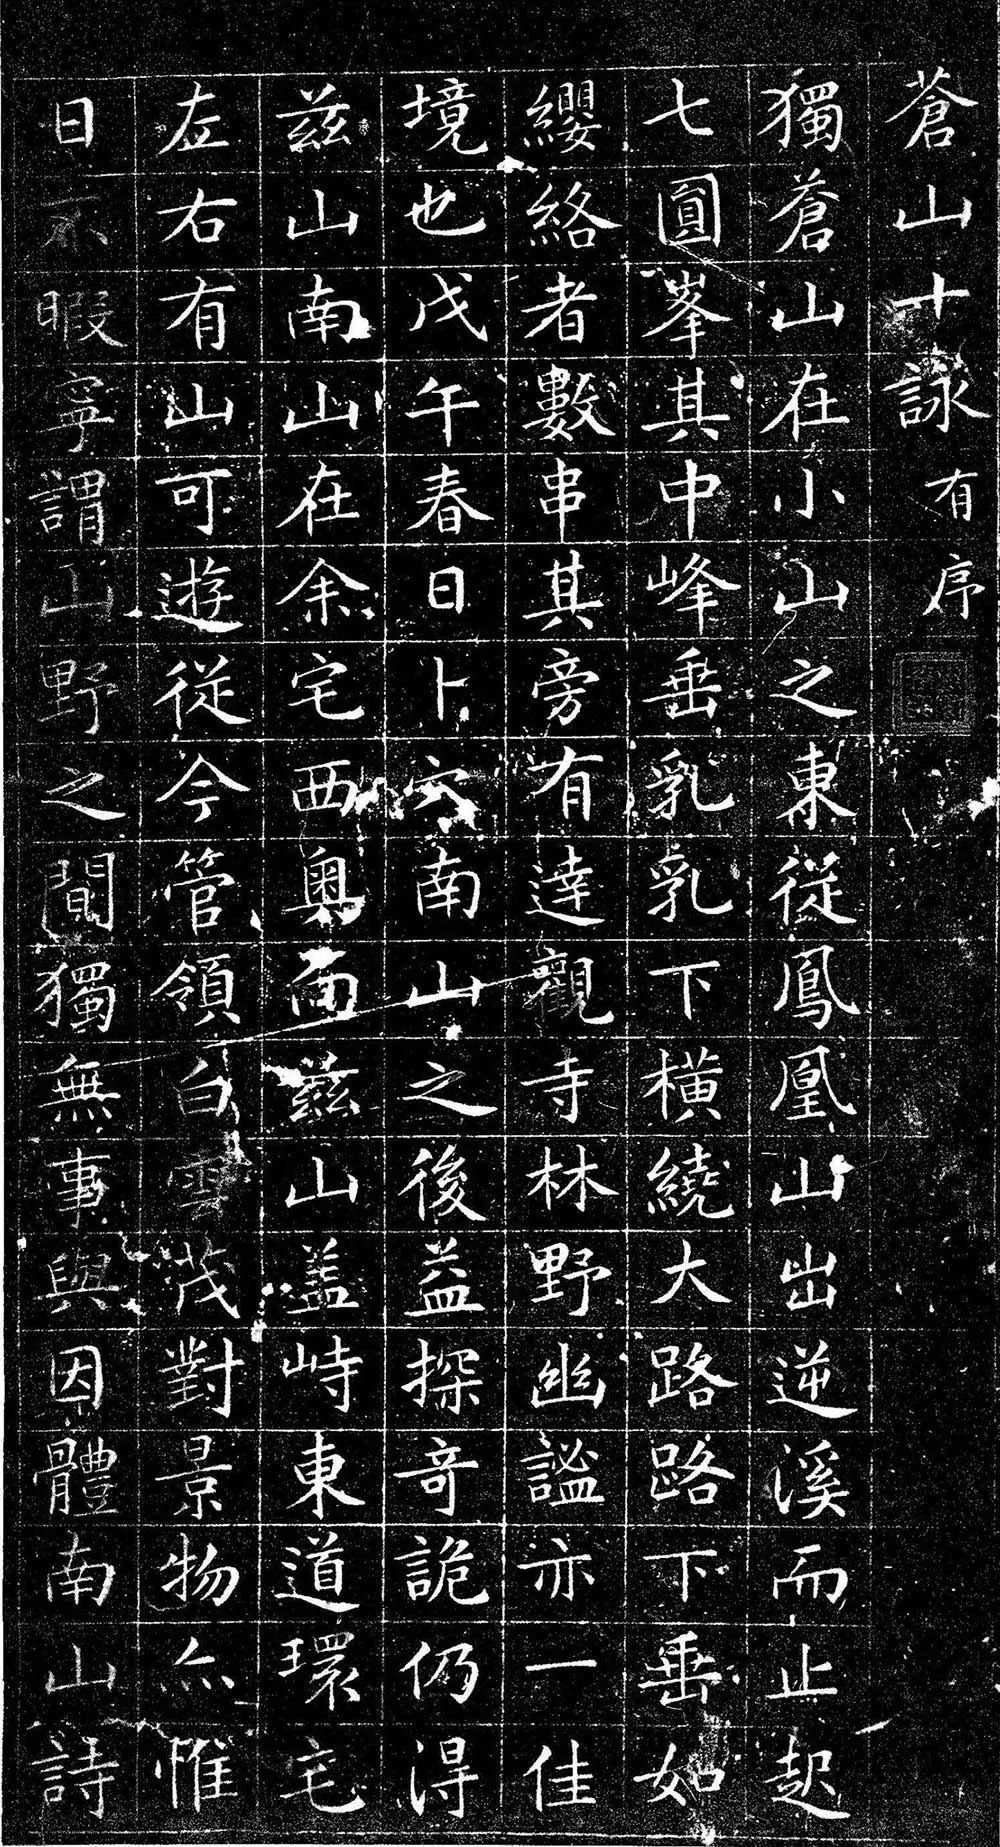 蒼山十詠有序
獨蒼山在小山之東從鳳凰山出逆溪而止起
七圓峯其中峰垂乳乳下橫繞大路路下垂如
纓絡者數串其旁有達觀寺林野幽謐亦一佳
境也戊午春日卜穴南山之後益探奇詭仍得
茲山南山在余宅西奧面茲山蓋峙東道環宅
左右有山可遊從今管領白雲茂對景物亦惟
日不暇寧謂山野之間獨無事與因體南山詩